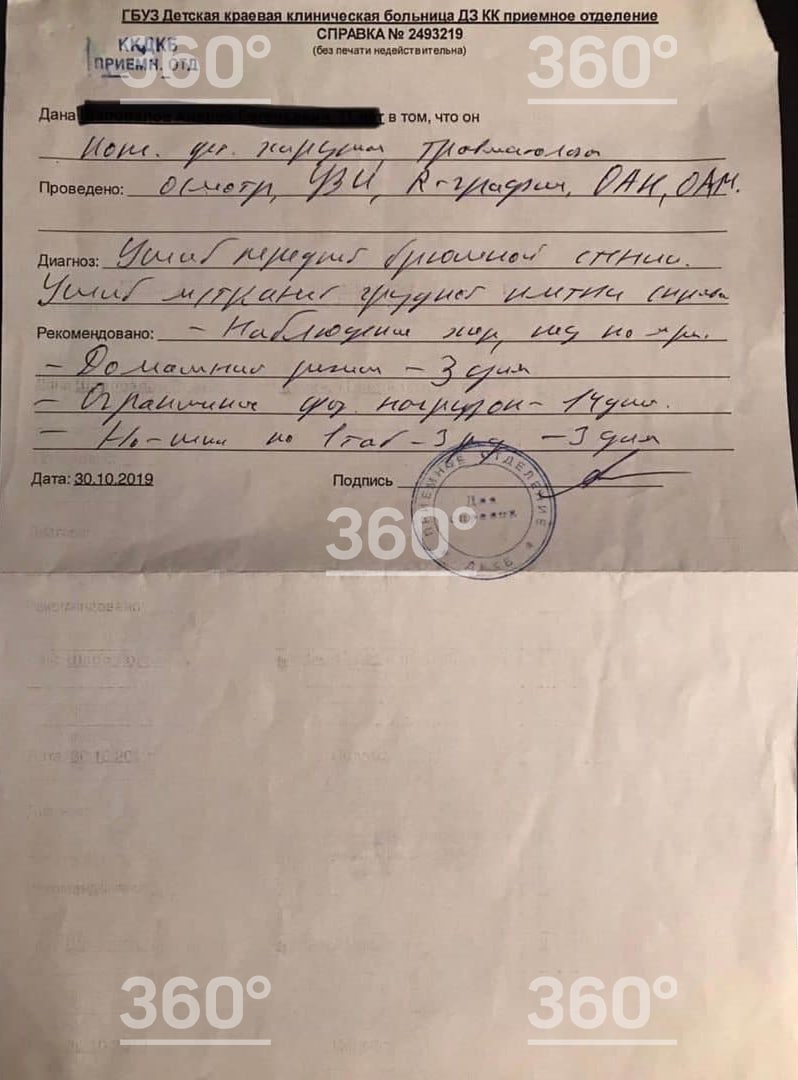 ГБУЗ Детская краевая клиническая больница ДЗ КК приемное отделение
СПРАВКА № 2493219
(без печати недействительна)
ККДКБ
ПРИЕМН. ОТД
Дана в том, что он
Конс. дет. хирургом, травматолога
Проведено: осмотр, УЗИ, R-графия, ОАК, ОАМ.
Диагноз: Ушиб передней брюшной стенки.
Ушиб м/тканей грудной клетки справа
Рекомендовано: - Наблюдение хир,
- Домашний режим - 3 дня
- Ограничение физ. нагрузок - 14 дней.
- Но-шпа по 1 таб - 3 р/д - 3 дня
Дата: 30.10.2019 Подпись
ПРИЕМНОЕ ОТДЕЛЕНИЕ
Для справок
360°
360°
360°
360°
360°